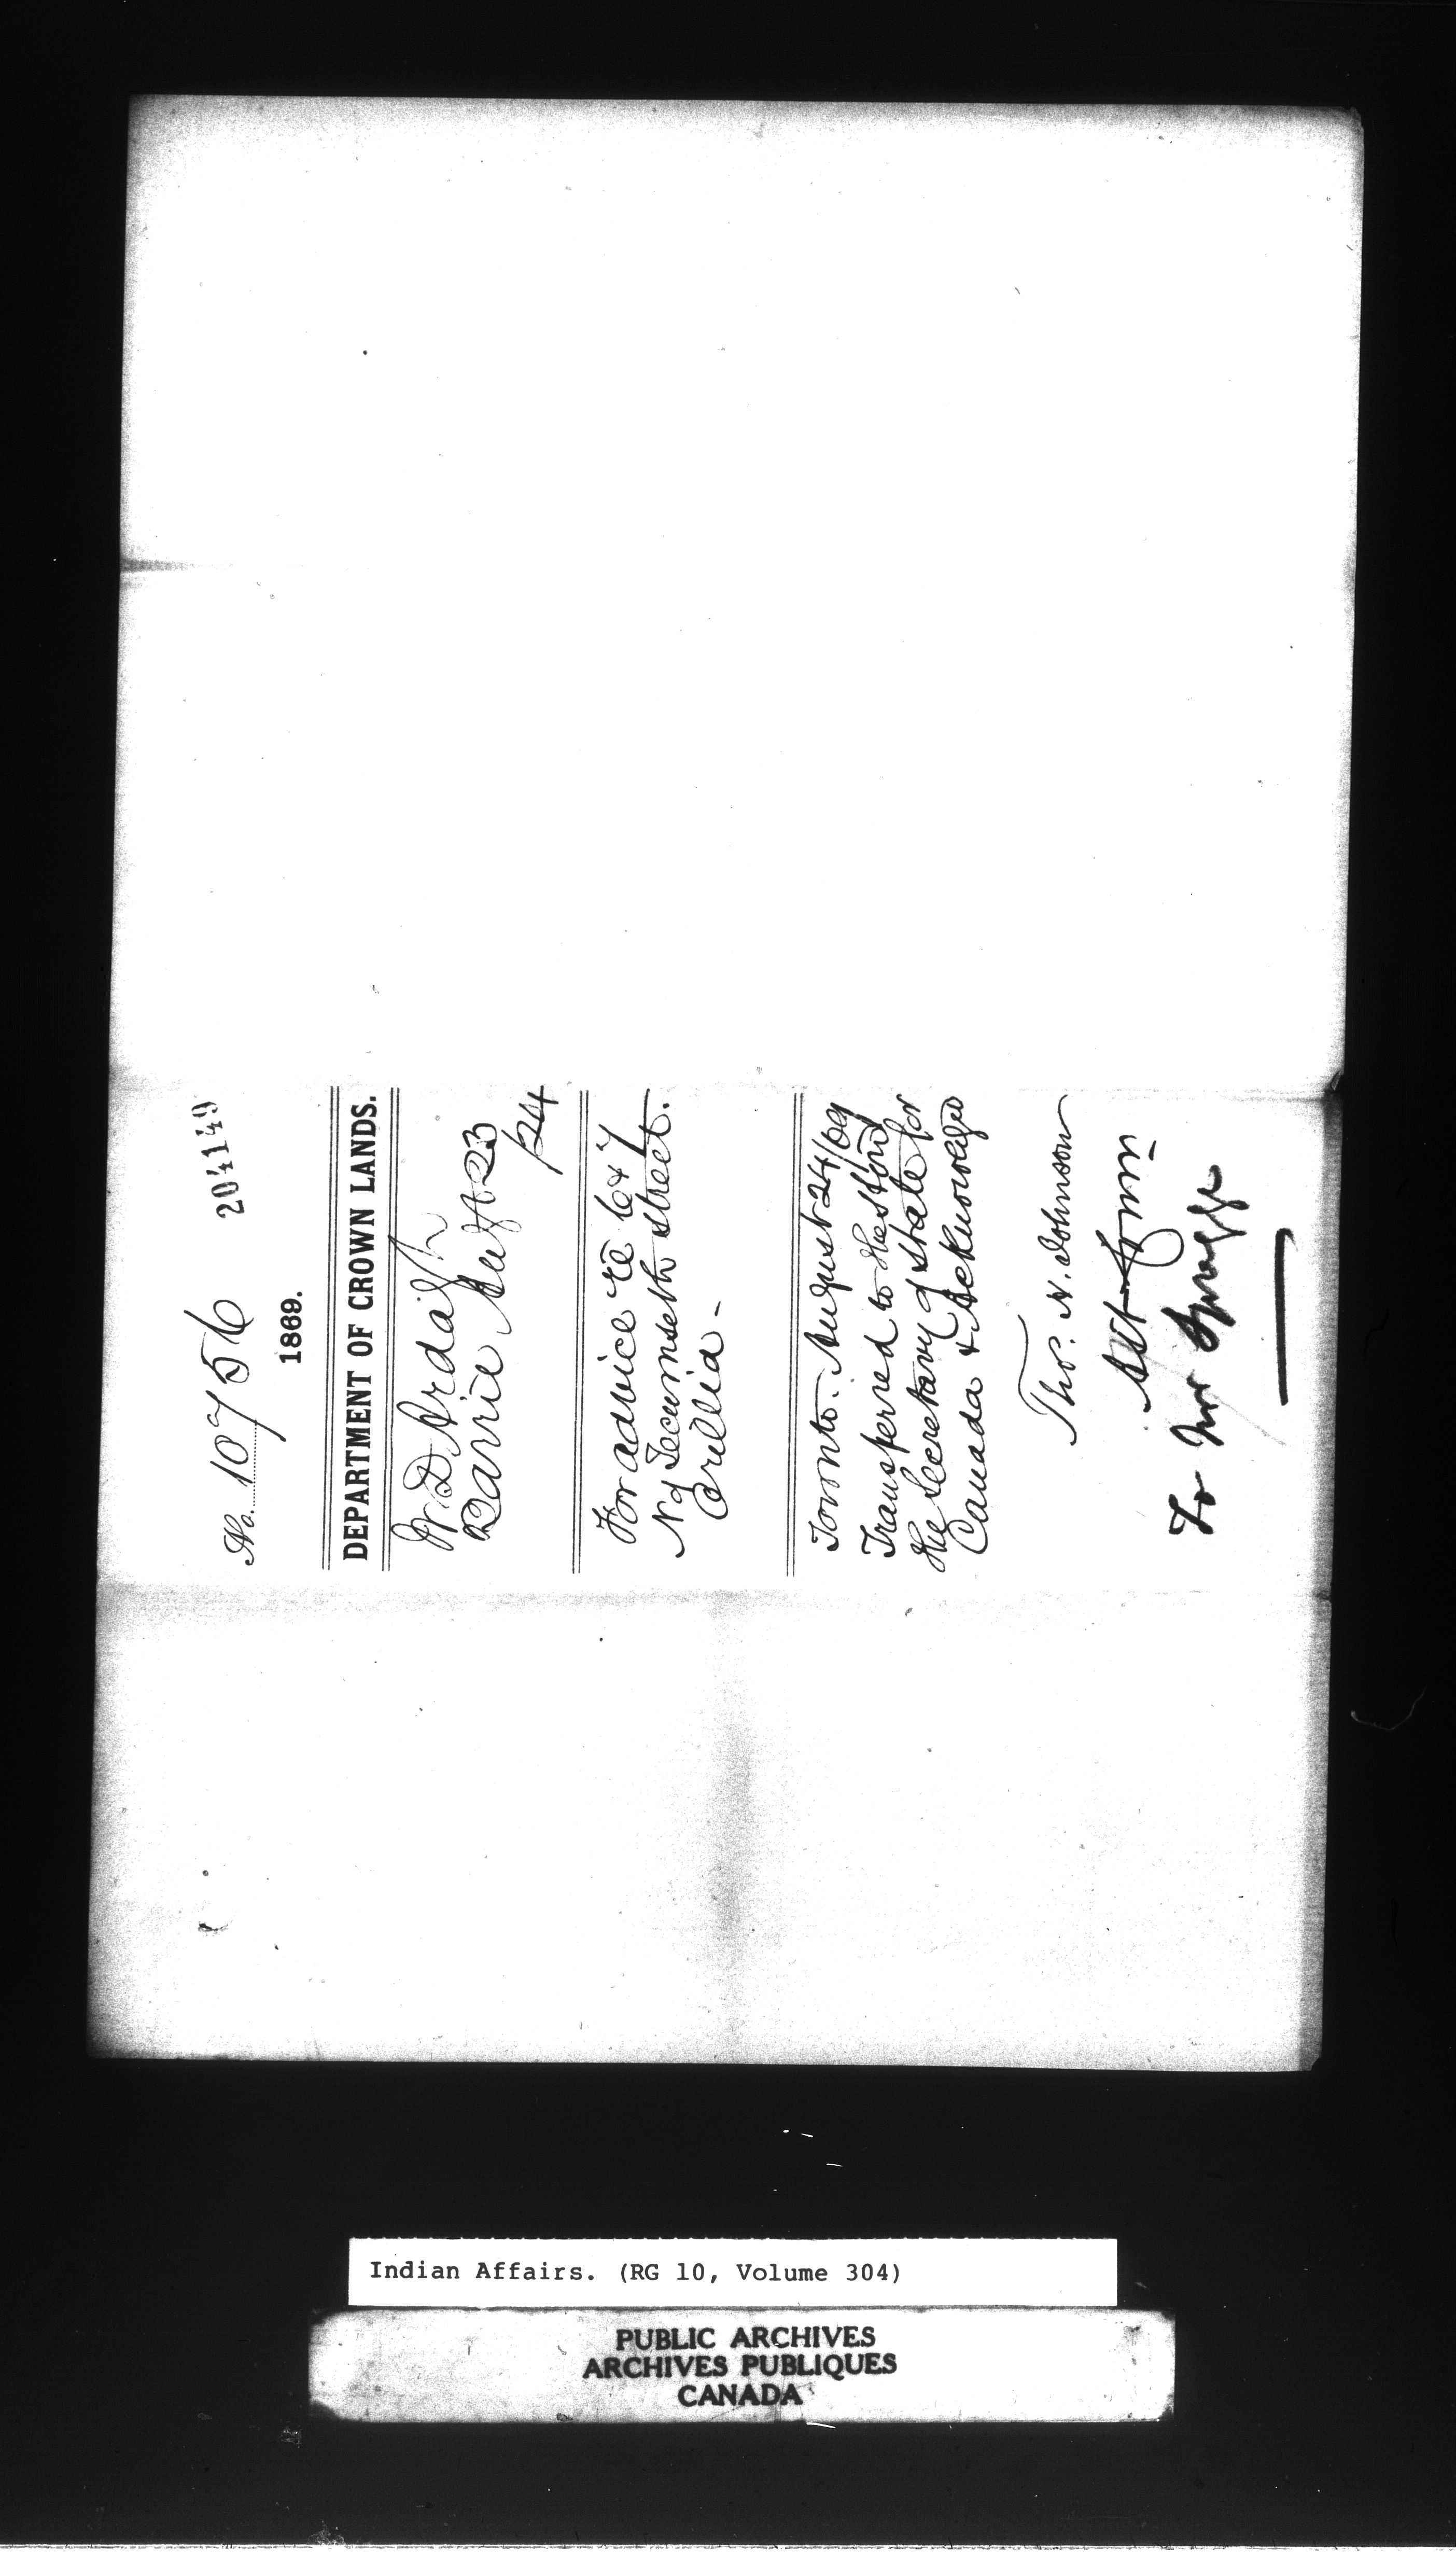 204149
No. 10756
1869.
DEPARTMENT OF CROWN LANDS.
W D Ardagh
Barrie Augt 23
/24
For advice re 6 & 7
N of Tecumseth Street.
Orillia -
Toronto. August 24/69
Transferred to the Hon
the Secretary of State for
Canada & Acknowledged
Tho. H. Johnson
Asst Comr
To Mr Spragge
Indian Affairs. (RG 10, Volume 304)
PUBLIC ARCHIVES
ARCHIVES PUBLIQUES
CANADA